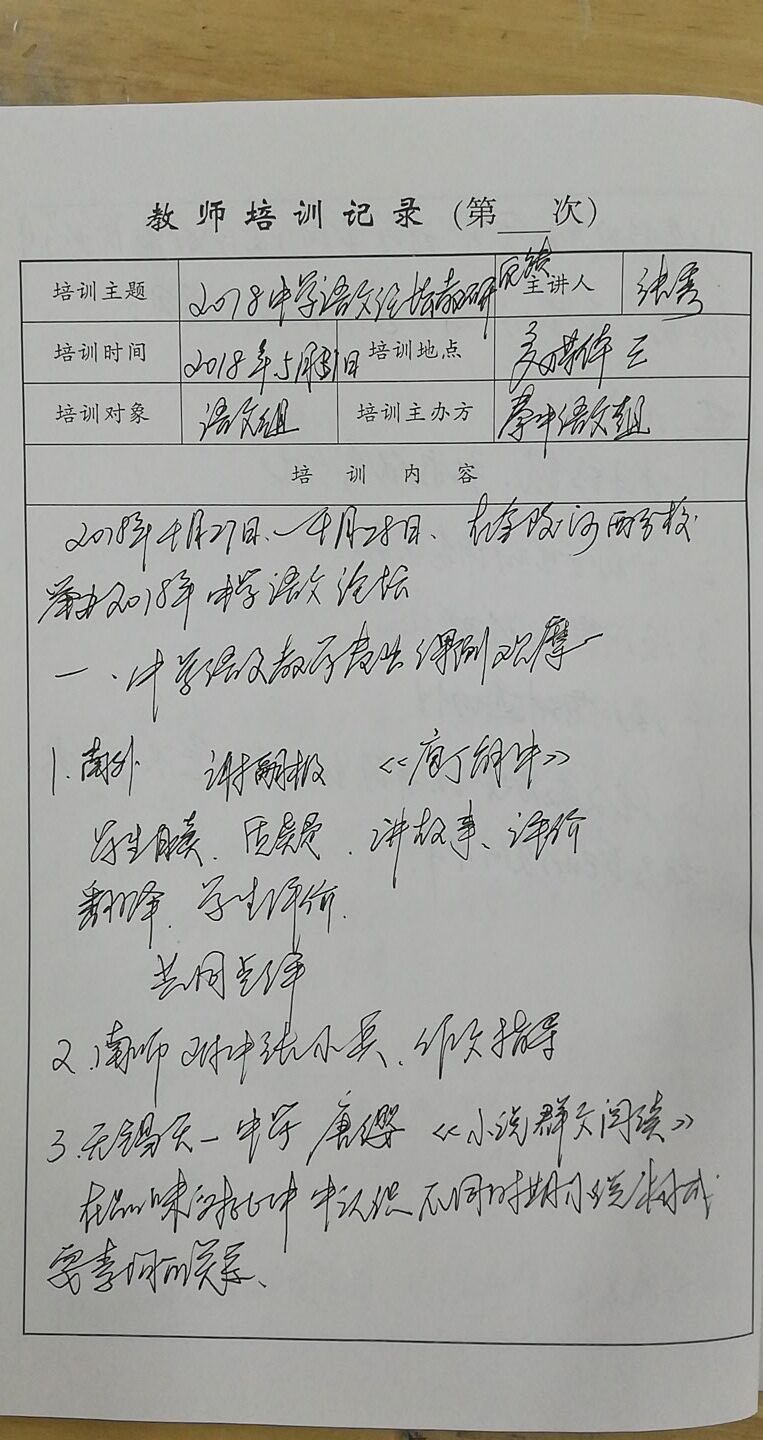 教师培训记录(第___次)
培训主题 2018中学语文论坛教研反馈 主讲人 张秀
培训时间 2018年5月31日 培训地点 多媒体三
培训对象 语文组 培训主办方 语文组
培训内容
2018年4月27日、—4月28日、在金陵河西分校
举办2018年中学语文论坛
一、中学语文教学 课例观摩
1.南外 《庖丁解牛》
学生自读、质疑、讲故事、评价
翻译、学生评价.
共同点评
2.南师附中张小兵、作文指导
3.无锡天一中学 唐缨 《小说群文阅读》
在品味 中认识不同时期小说
要素间的关系、